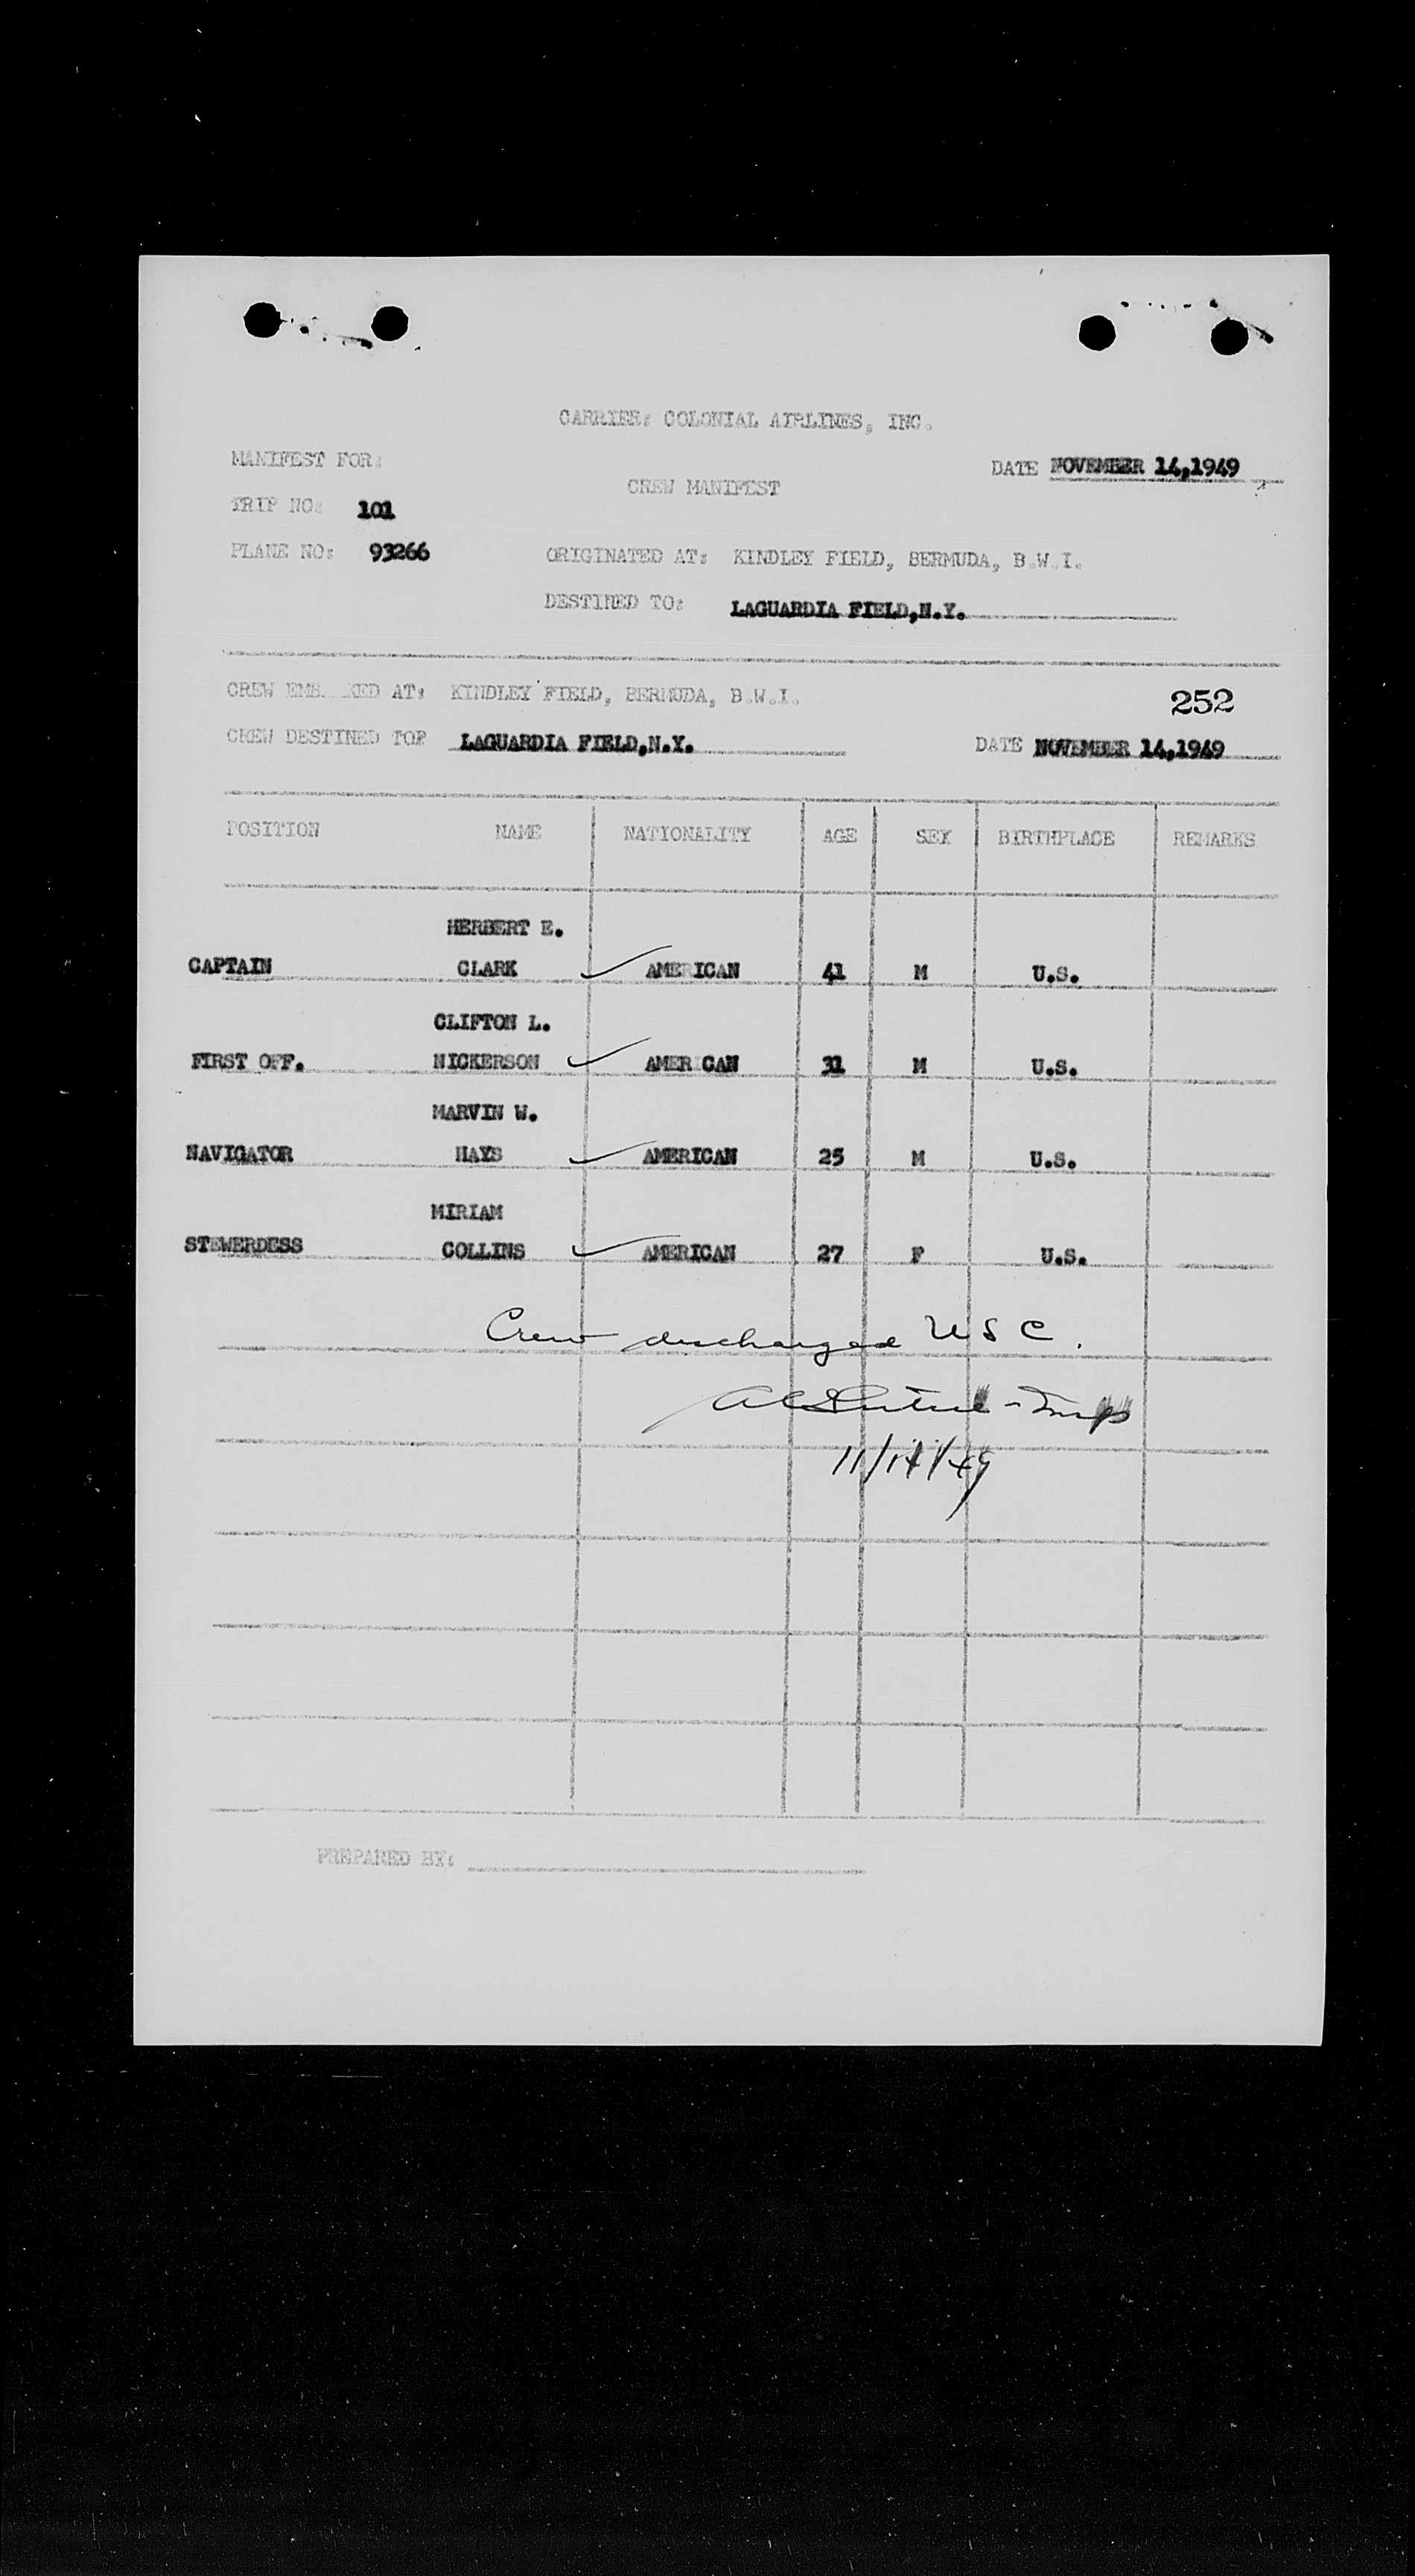 CARRIER: COLONIAL AIRLINES, INC.
MANIFEST FOR:
DATE NOVEMBER 14,1949
CREW MANIFEST
TRIP NO: 101
PLANE NO: 93266
ORIGINATED AT: KINDLEY FIELD, BERMUDA, B.W.I.
DESTINED TO: LAGUARDIA FIELD,N.Y.
CREW EMB. KED AT: KINDLEY FIELD, BERMUDA, B.W.I.
252
CREW DESTINED TO: LAGUARDIA FIELD,N.Y. DATE NOVEMBER 14,1949
POSITION NAME NATIONALITY AGE SEX BIRTHPLACE REMARKS
HERBERT E.
CAPTAIN CLARK AMERICAN 41 M U.S.
CLIFTON L.
FIRST OFF. NICKERSON AMERICAN 31 M U.S.
MARVIN W.
NAVIGATOR HAYS AMERICAN 25 M U.S.
MIRIAM
STEWERDESS COLLINS AMERICAN 27 F U.S.
Crew discharged USC.
11/14/49
PREPARED BY: